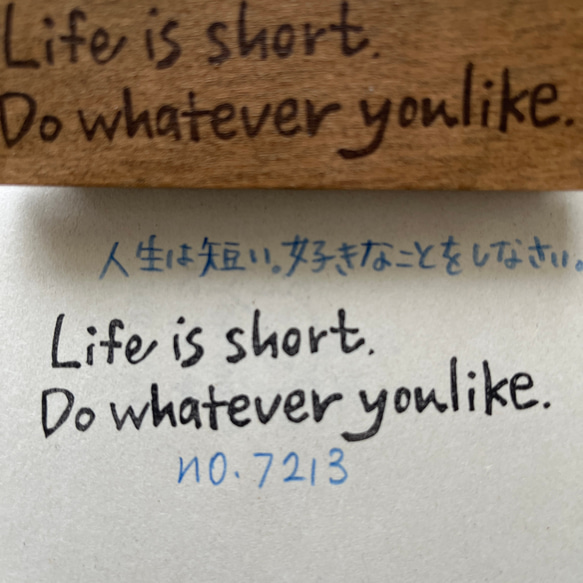 Life is short.
Do whatever you like.
人生は短い。好きなことをしなさい。
Life is short.
Do whatever you like.
no.7213